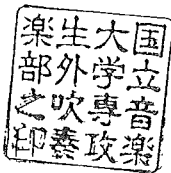 国立音楽
大学専攻
生外吹奏
楽部之印